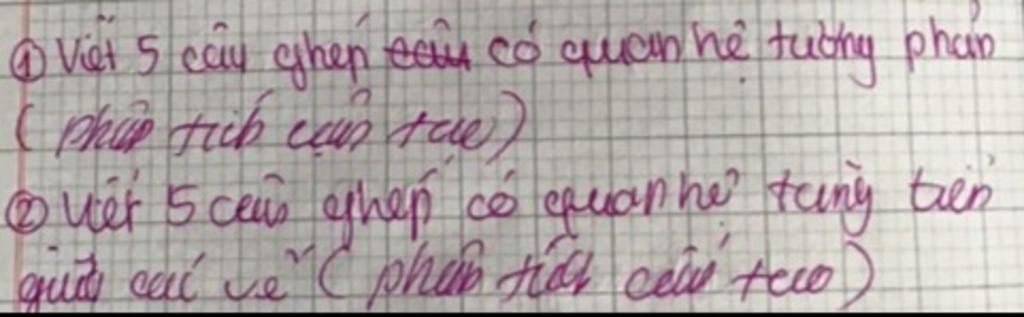 ① Viết 5 câu ghép có quan hệ tương phản
( phân tích cấu tạo )
② Viết 5 câu ghép có quan hệ tăng tiến
giữa các vế ( phân tích cấu tạo )